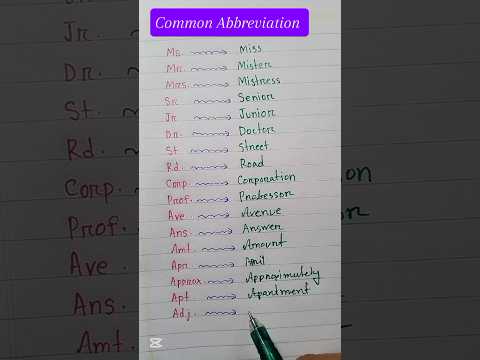 Common Abbreviation
Ms. Miss
Mr. Mister
Mrs. Mistress
Sr. Senior
Jr. Junior
Dr. Doctor
St. Street
Rd. Road
Corp. Corporation
Prof. Professor
Ave Avenue
Ans. Answer
Amt. Amount
Apr. April
Approx. Approximetely
Apt Apartment
Adj.
Jr.
Dr.
St.
Rd.
Corp.
Prof.
Ave
Ans.
Amt.